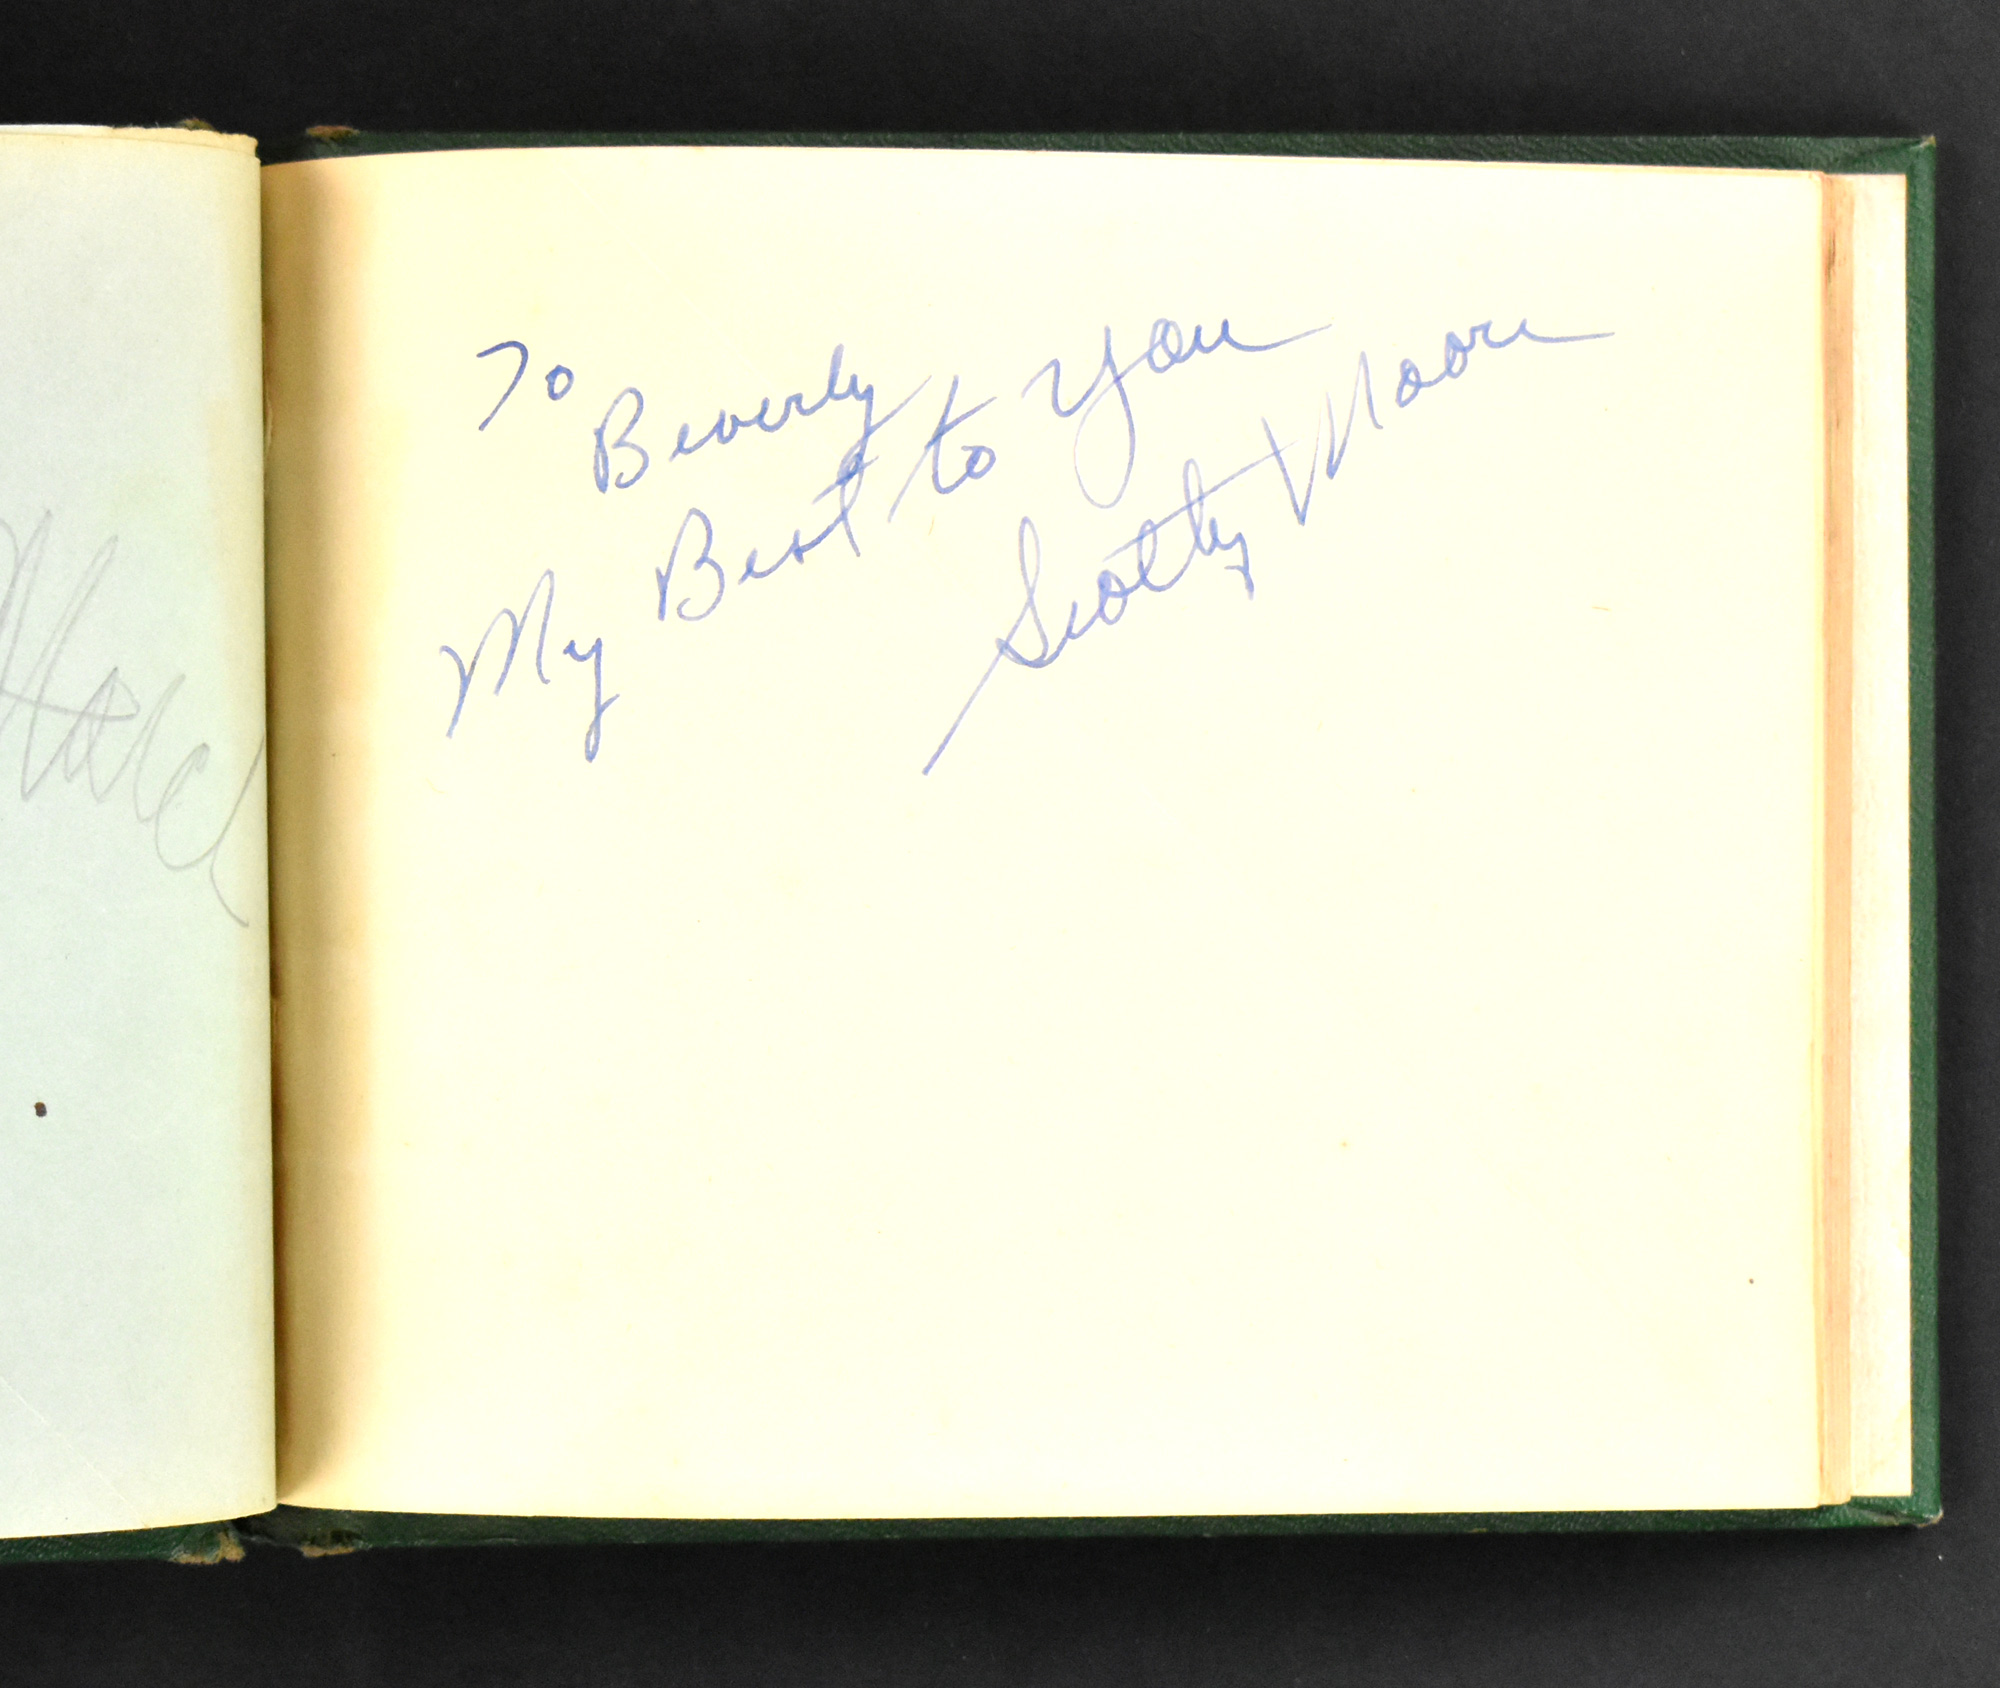 To Beverly
My Best to You
Scotty Moore